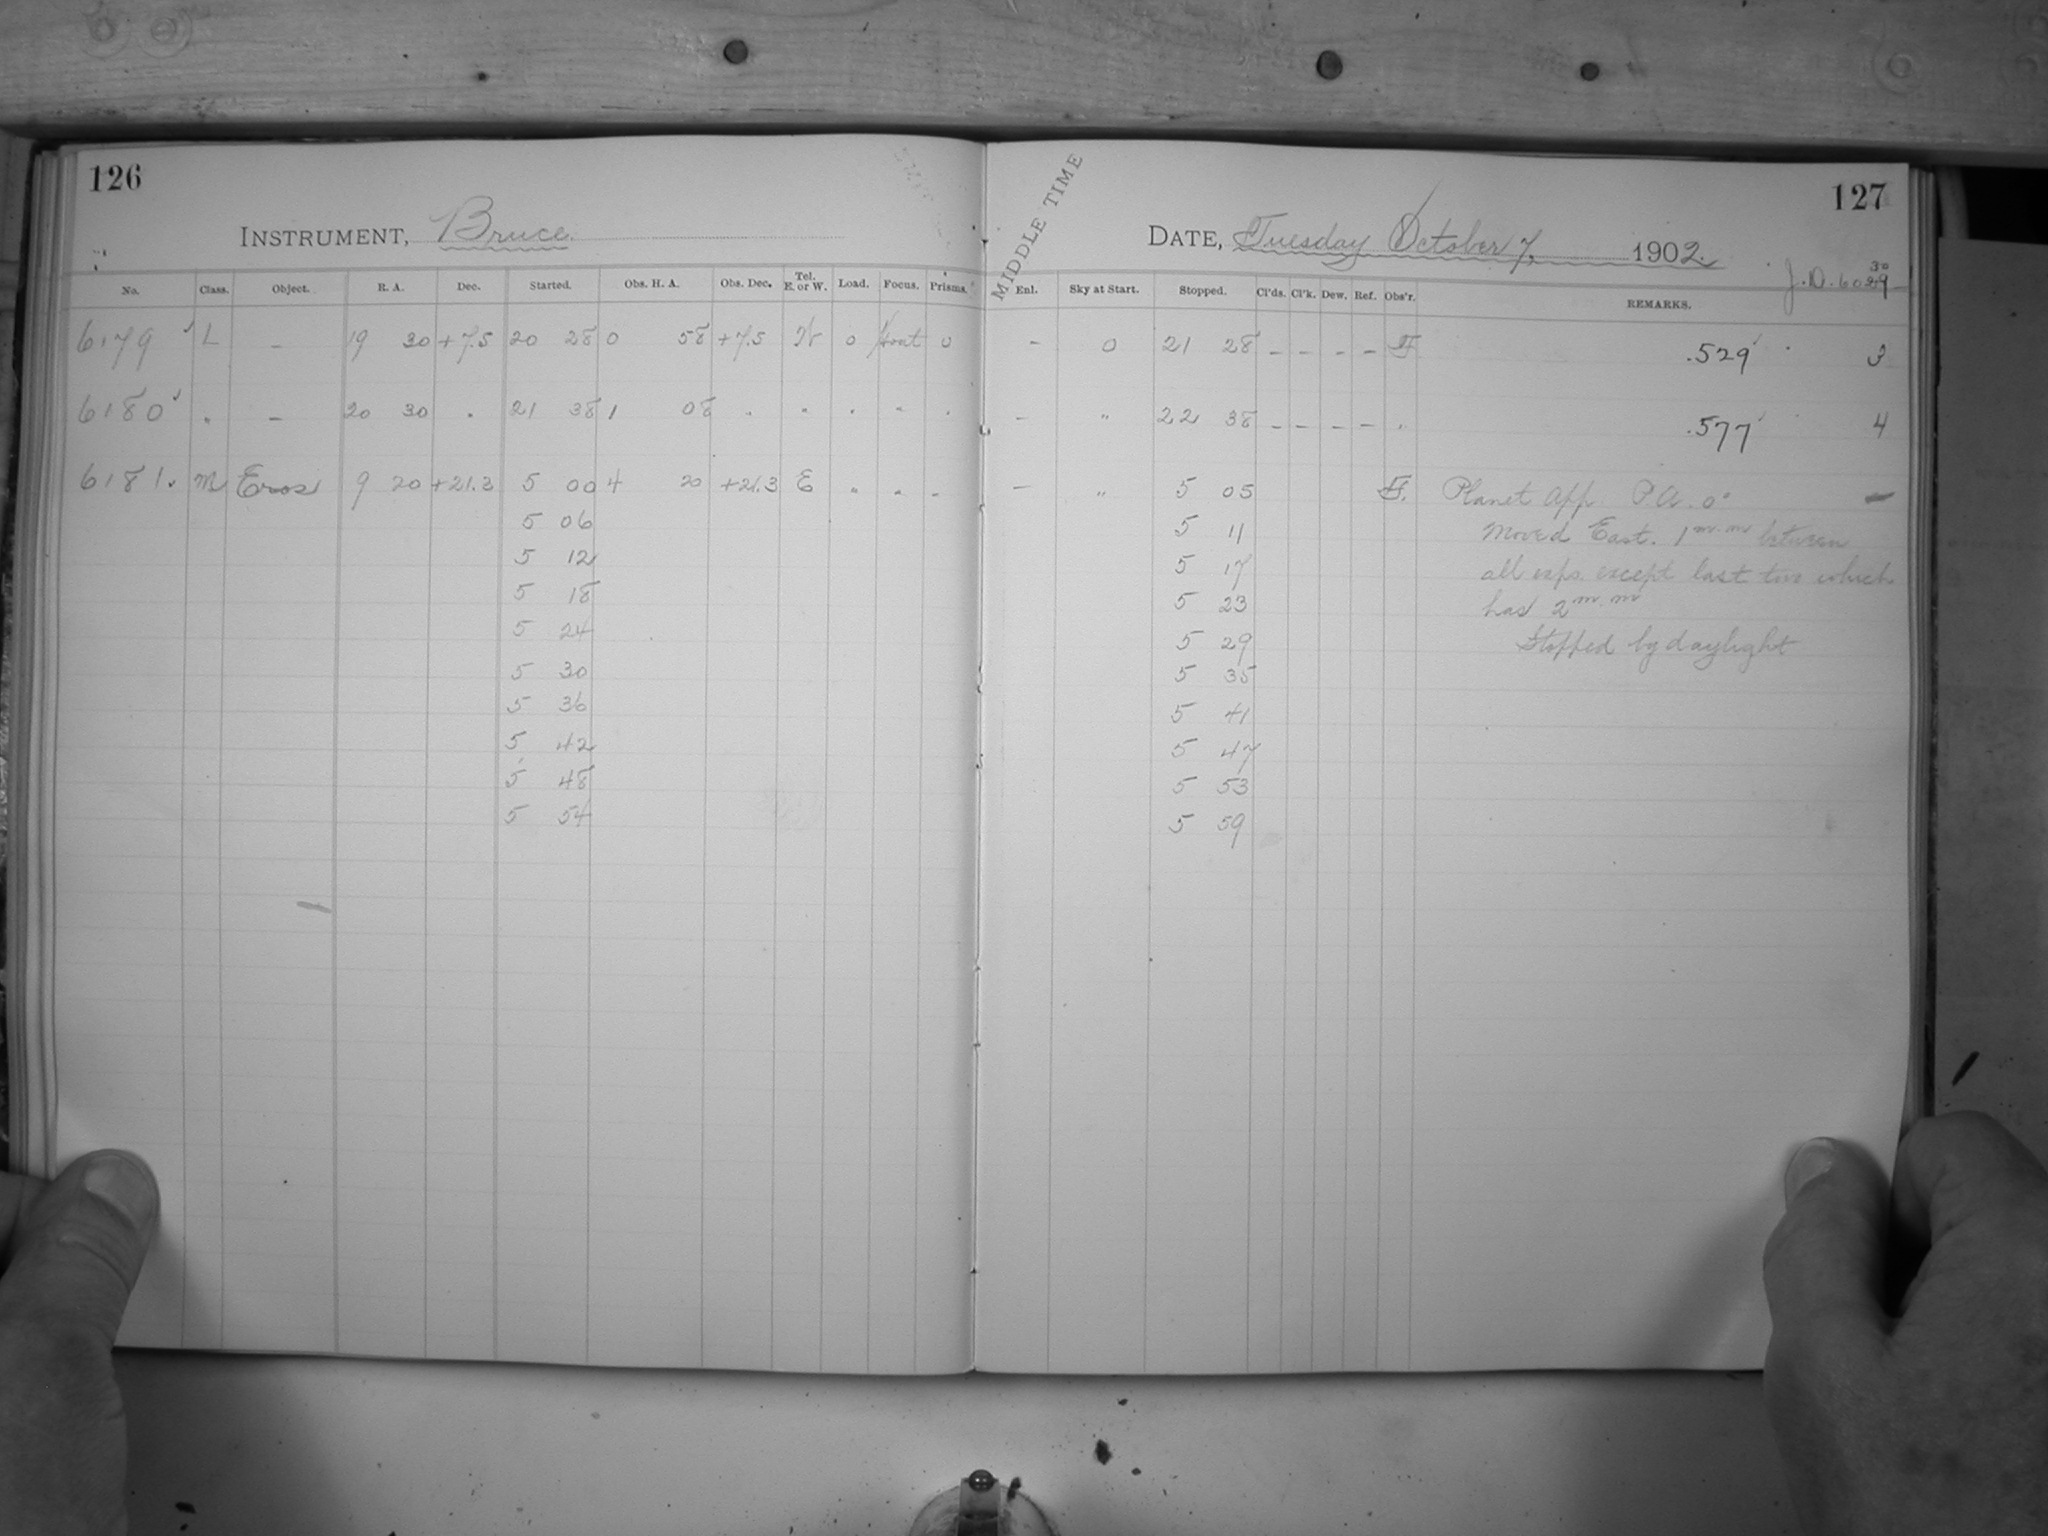 126
INSTRUMENT, Bruce.
No. Class. Object. R. A. Dec. Started. Obs. H. A. Obs. Dec. Tel. E. or W. Load. Focus. Prisms.
6179 L — 19 30 +7.5 20 28 0 58 +7.5 W 0 0
6180 " — 20 30 " 21 38 1 08 " " " " "
6181. M Eros 9 20 +21.3 5 00 4 20 +21.3 E " " –
5 06
5 12
5 18
5 24
5 30
5 36
5 42
5 48
5 54
127
MIDDLE TIME
DATE, Tuesday October 7, 1902.
J.D. 6029 30
Enl. Sky at Start. Stopped. Cl'ds. Cl'k. Dew. Ref. Obs'r. REMARKS.
– 0 21 28 – – – – .529 3
– " 22 38 – – – – " .577 4
– " 5 05 Planet app. P.A. 0° –
5 11 Moved East. 1 m.m between
5 17 all exps. except last two which
5 23 has 2 m.m
5 29 Stopped by daylight
5 35
5 41
5 47
5 53
5 59